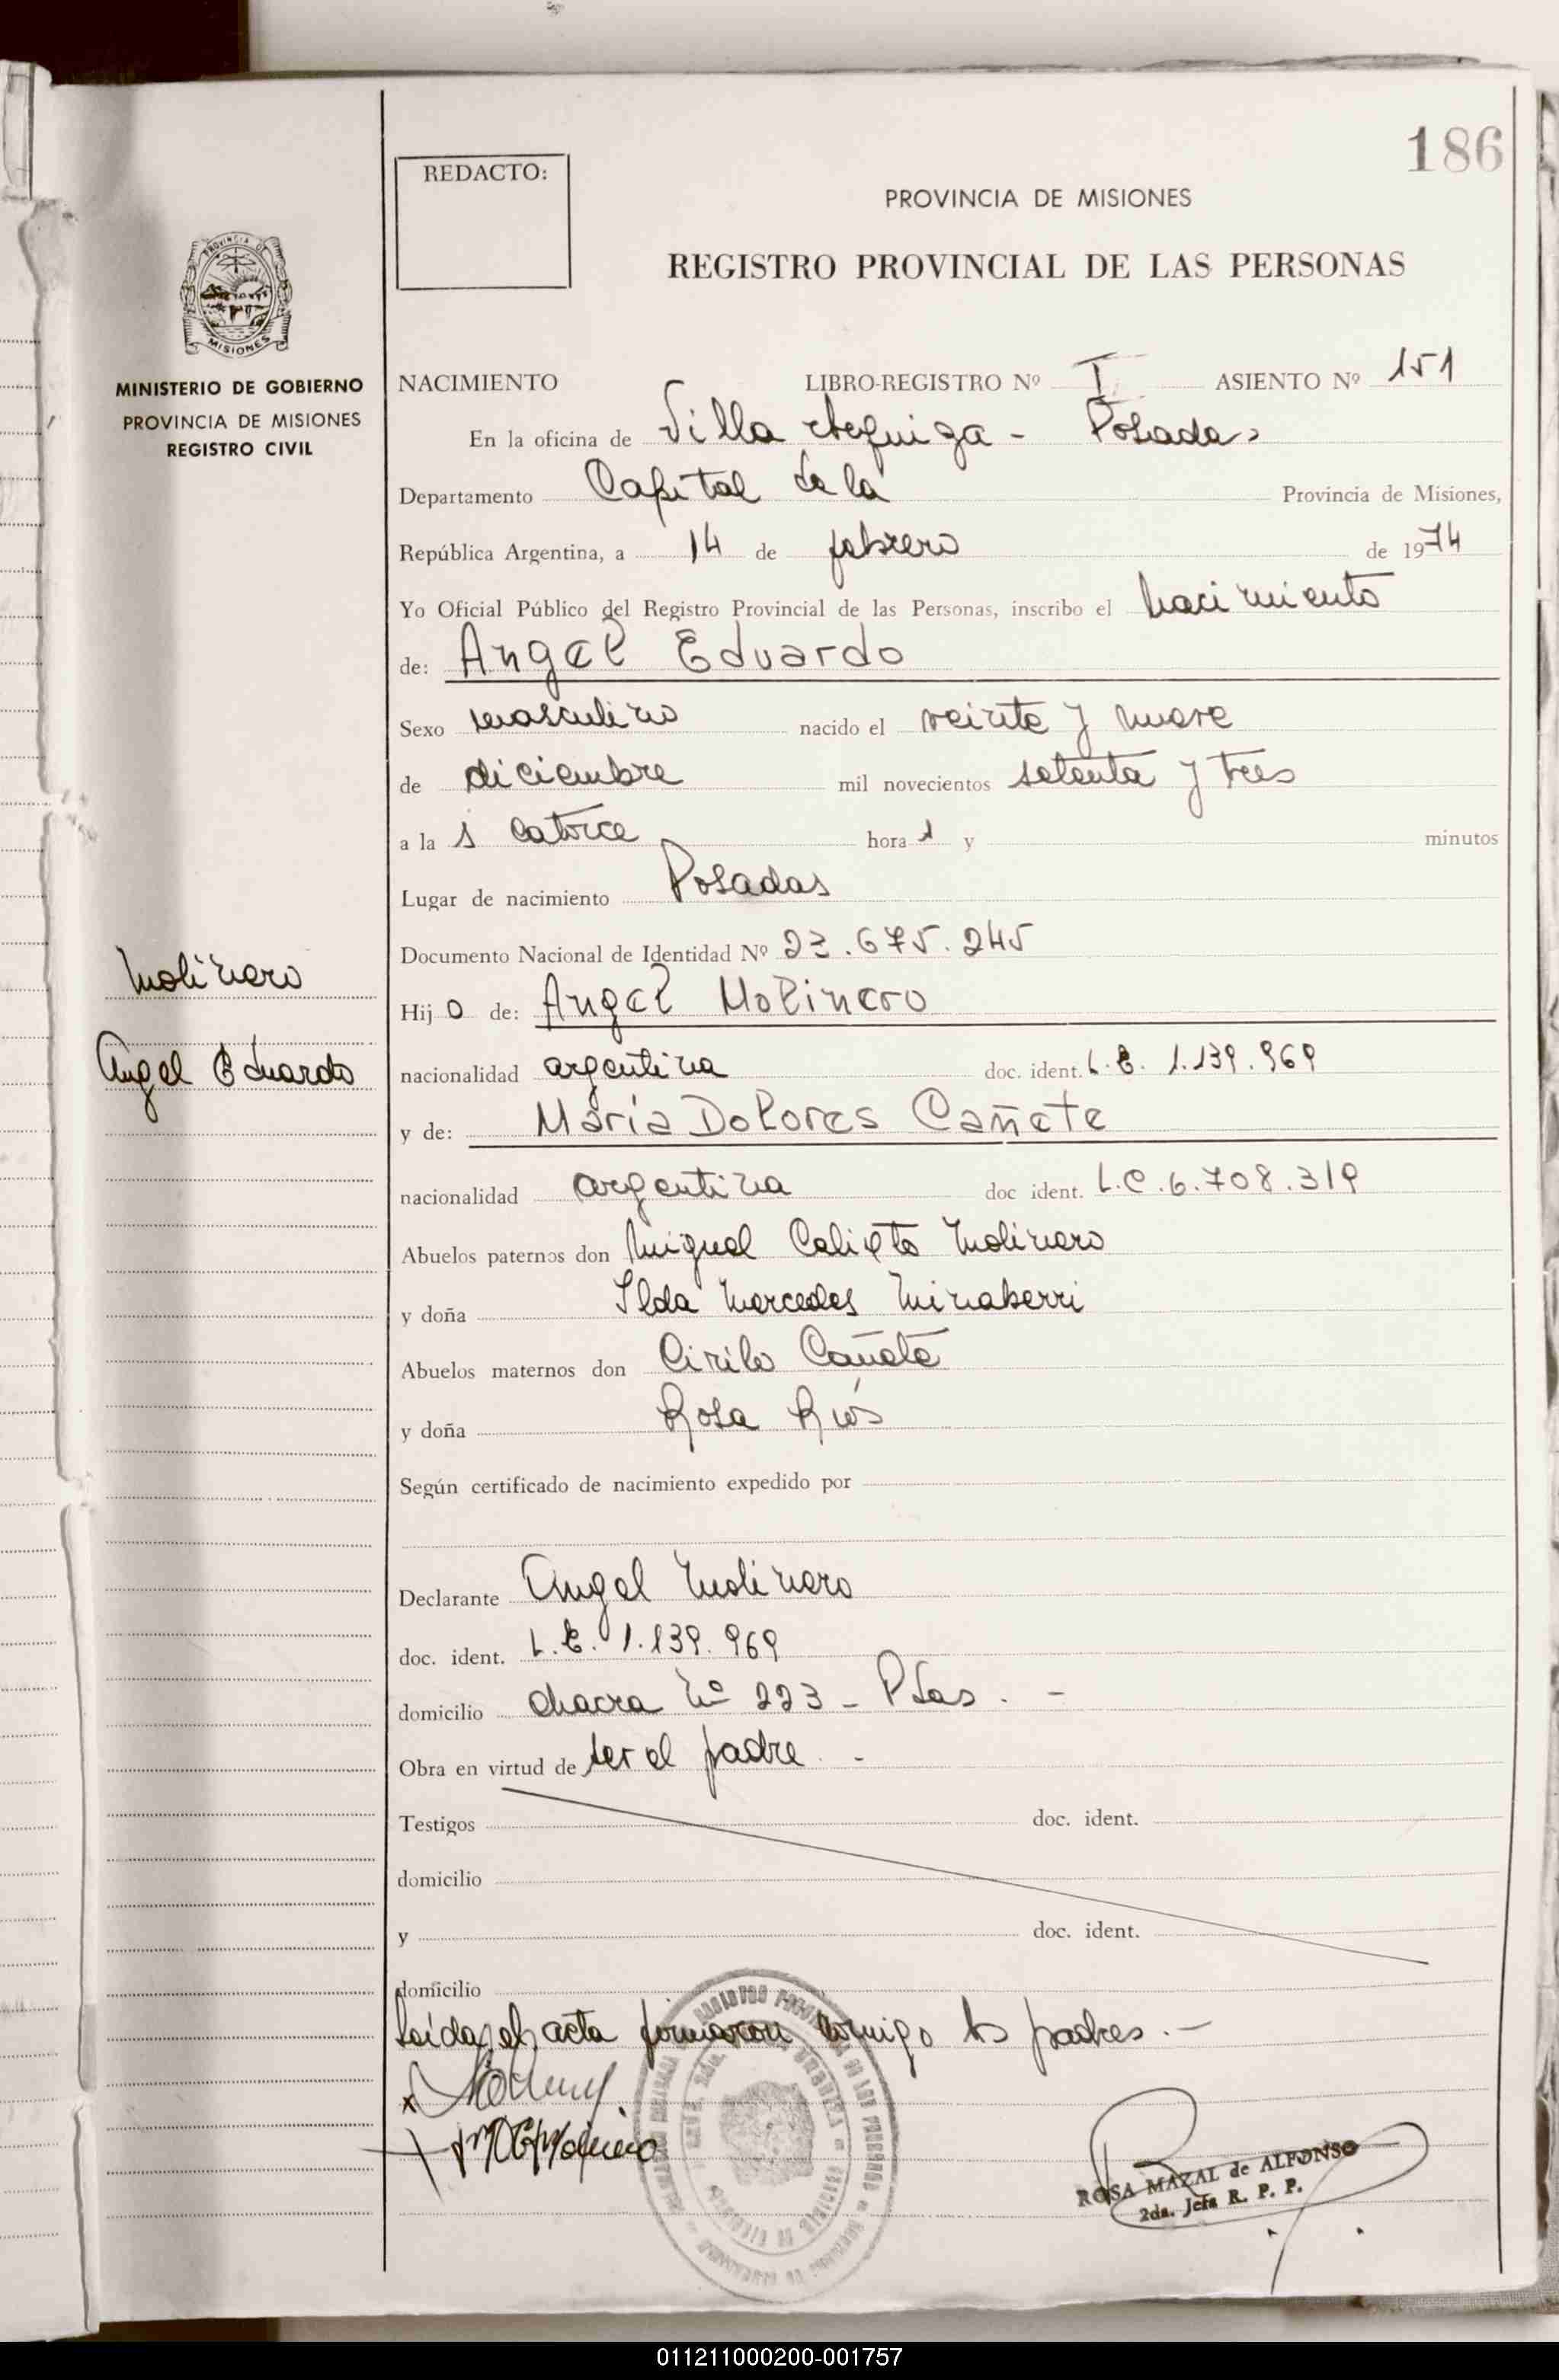 186
REDACTO:
PROVINCIA DE MISIONES
REGISTRO PROVINCIAL DE LAS PERSONAS
MISIONES
MINISTERIO DE GOBIERNO
PROVINCIA DE MISIONES
REGISTRO CIVIL
NACIMIENTO LIBRO-REGISTRO Nº I ASIENTO Nº 151
En la oficina de Villa Posadas
Departamento Capital de la Provincia de Misiones,
República Argentina, a 14 de febrero de 1974
Yo Oficial Público del Registro Provincial de las Personas, inscribo el nacimiento
de: Angel Eduardo
Sexo masculino nacido el veinte y nueve
de diciembre mil novecientos setenta y tres
a la s catorce hora s y minutos
Lugar de nacimiento Posadas
Documento Nacional de Identidad Nº 23.675.245
Molinero
Hij o de: Angel Molinero
Angel Eduardo
nacionalidad argentina doc. ident. L.E. 1.139.969
y de: María Dolores Cañete
nacionalidad argentina doc ident. L.C. 6.708.319
Abuelos paternos don Miguel Calixto Molinero
y doña Ilda Mercedes Minaberri
Abuelos maternos don Cirilo Cañete
y doña Rosa Ríos
Según certificado de nacimiento expedido por
Declarante Angel Molinero
doc. ident. L.E. 1.139.969
domicilio chacra Nº 223 - Pdas. -
Obra en virtud de ser el padre. -
Testigos doc. ident.
domicilio
y doc. ident.
domicilio
Leída el acta firmaron conmigo los padres. -
ROSA MAZAL de ALFONSO
2da. Jefa R. P. P.
011211000200-001757